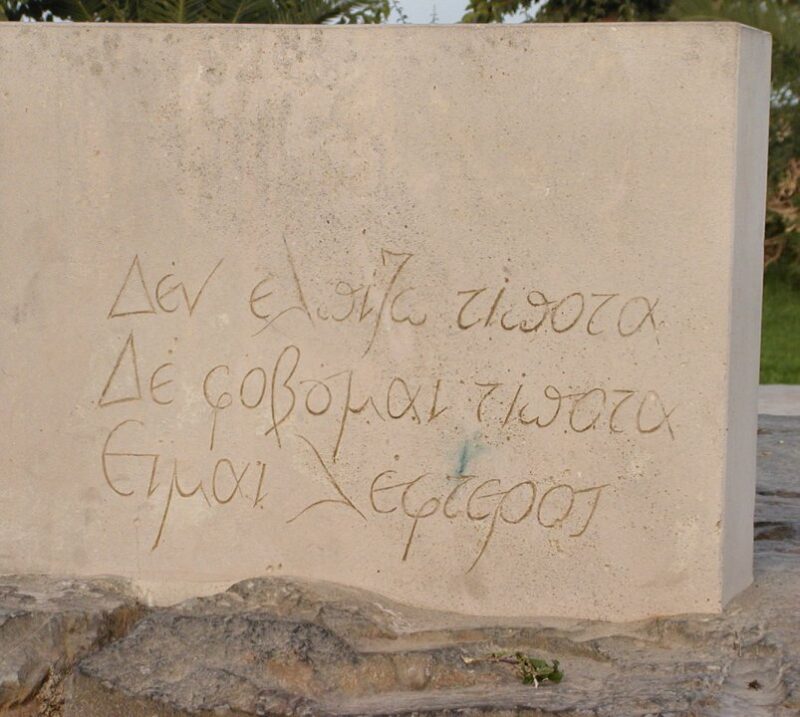 Δὲν ἐλπίζω τίποτα
Δὲ φοβοῦμαι τίποτα
Εἶμαι λέφτερος